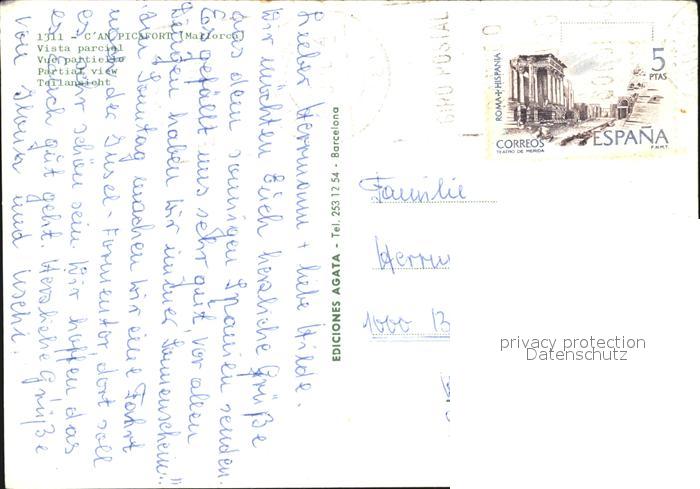 1311 - C'AN PICAFORT (Mallorca)
Vista parcial
Vue partielle
Partial view
Teilansicht
Lieber Hermann + liebe Hilde.
Wir möchten Euch herzliche Grüße
aus dem sonnigen Spanien senden.
Es gefällt uns sehr gut, vor allen
Dingen haben wir immer Sonnenschein!!
Am Sonntag machen wir eine Fahrt
rund der Insel - Formentor dort soll
es sehr schön sein. Wir hoffen das
es Euch gut geht. Herzliche Grüße
von und Uschi.
EDICIONES AGATA - Tel. 253 12 54 - Barcelona
GIRO POSTAL
ROMA + HISPANIA
5
PTAS
CORREOS
TEATRO DE MERIDA
ESPAÑA
F.N.M.T.
Familie
Herm
1000 B
privacy protection
Datenschutz